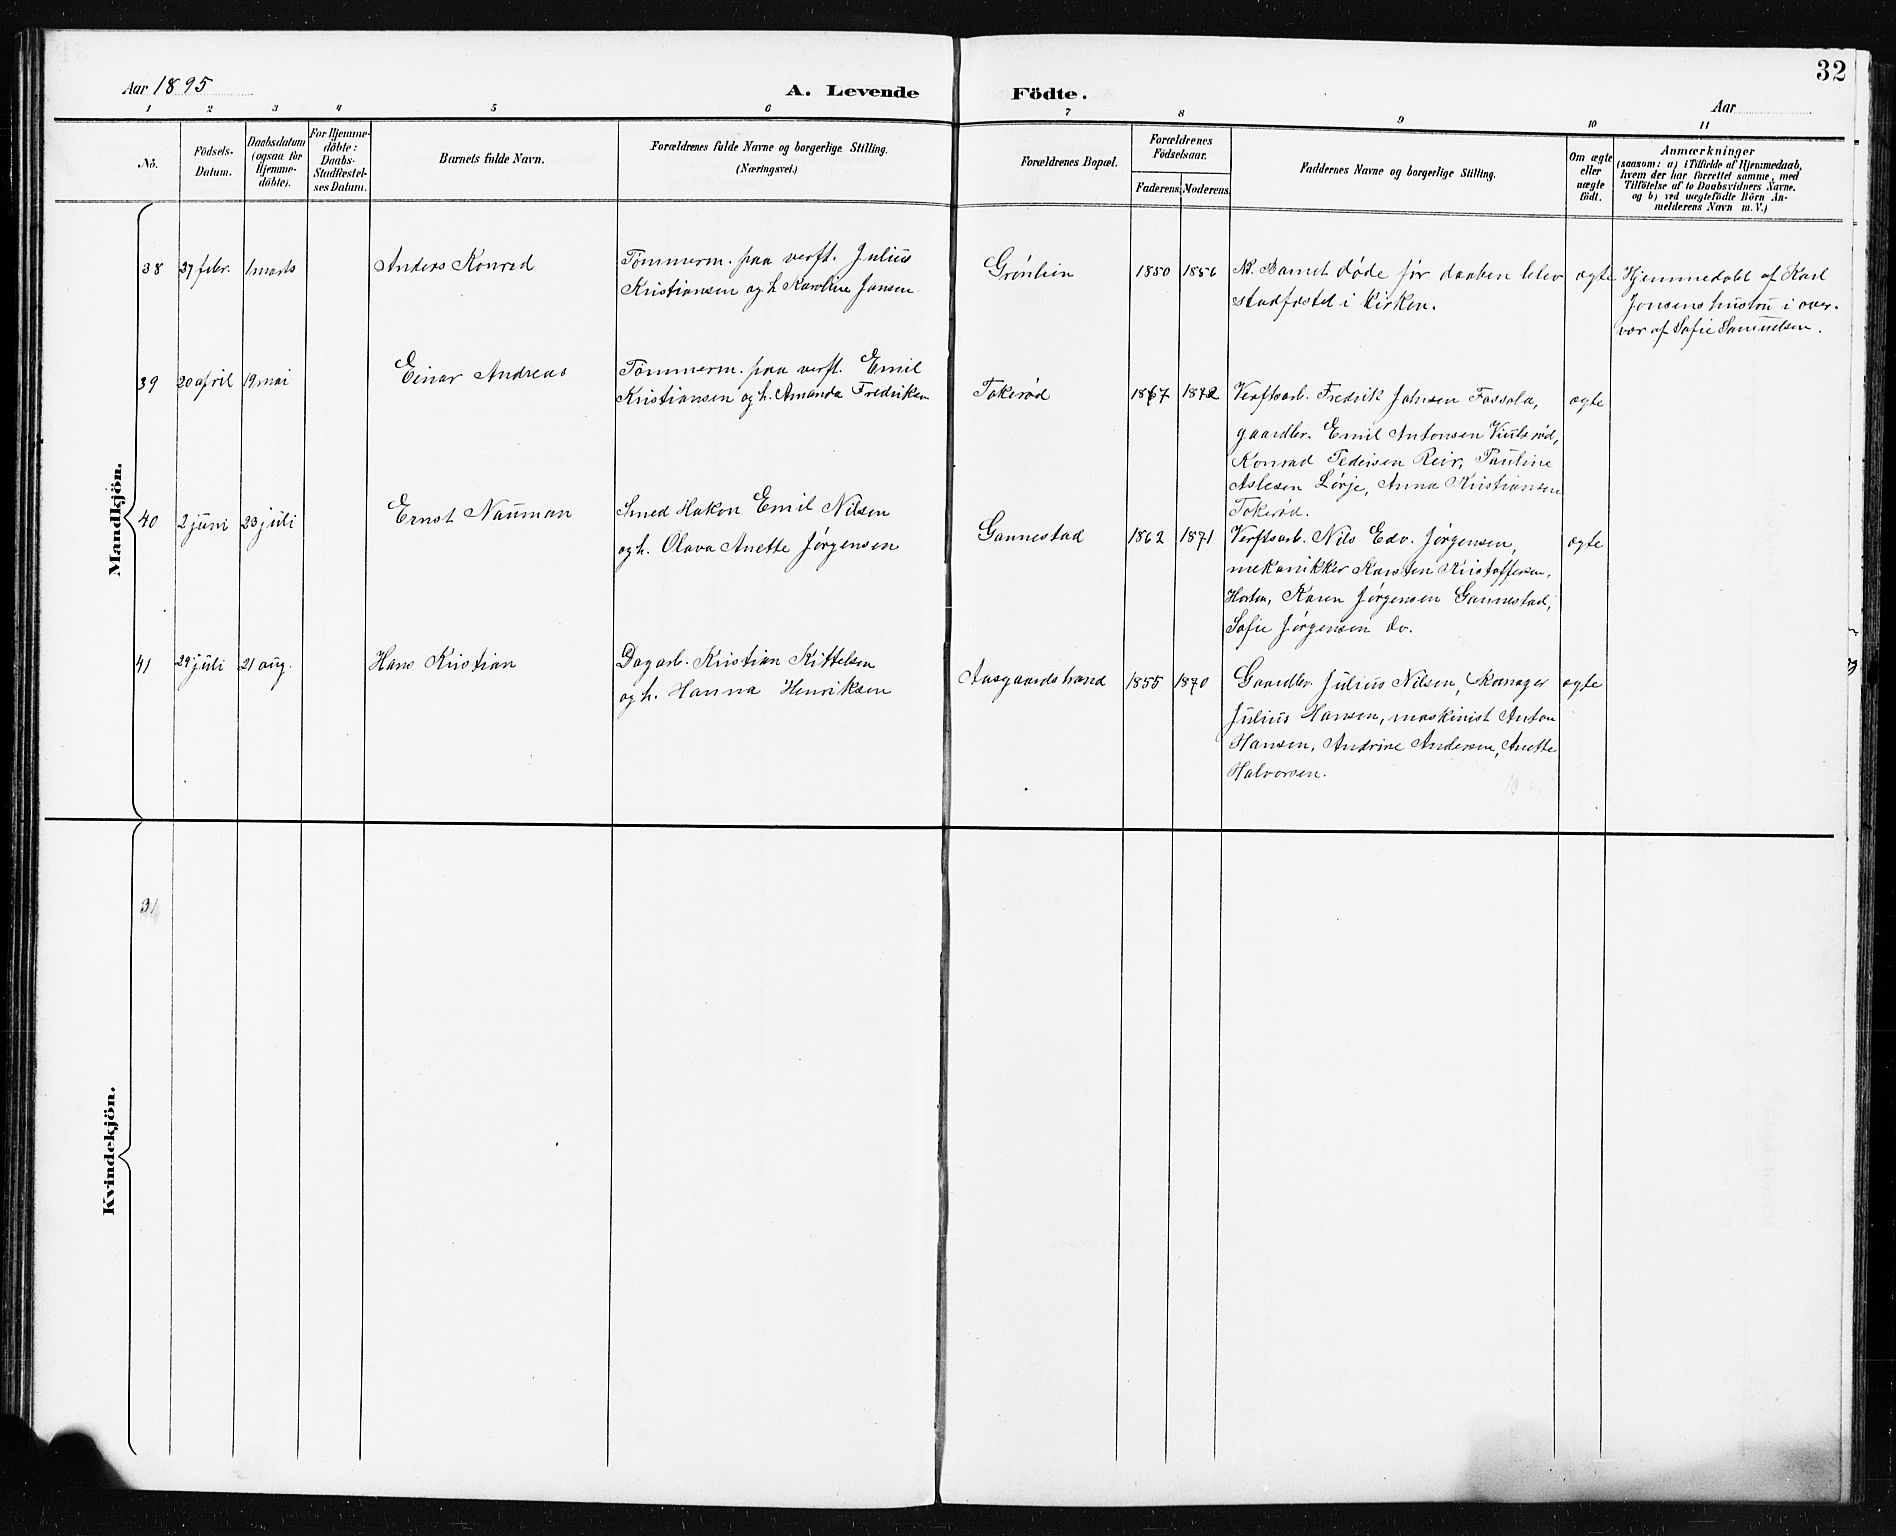 32
Aar 1895
A. Levende Födte.
Aar
1 2 3 4 5 6 7 8 9 10 11
No.
Födsels-
Datum.
Daabsdatum
(ogsaa for
Hjemme-
döbte).
For Hjemme-
döbte:
Daabs-
Stadfæstel-
ses Datum.
Barnets fulde Navn.
Forældrenes fulde Navne og borgerlige Stilling.
(Næringsvei.)
Forældrenes Bopæl.
Forældrenes
Födselsaar.
Faderens. Moderens.
Faddernes Navne og borgerlige Stilling.
Om ægte
eller
uægte
födt.
Anmærkninger
(saasom: a) i Tilfælde af Hjemmedaab,
hvem der har forrettet samme, med
Tilföielse af to Daabsvidners Navne.
og b) ved uægtefödte Börn An-
melderens Navn m. V.)
Mandkjön.
38 27 febr. 1 marts Anders Konrad
Tømmerm. paa verft. Julius
Kristiansen og h. Karoline Jansen
Grønlien 1850 1856
NB. Barnet døde før daaben blev
stadfæstet i kirken.
ægte
Hjemmedøbt af Karl
Jensens hustru i over-
vær af Sofie Samuelsen.
39 20 april 19 mai Einar Andreas
Tømmerm. paa verft. Emil
Kristiansen og h. Amanda Fredriksen
Tokerød 1867 1872
Verftsarb. Fredrik Johnsen Fossola,
gaardbr. Emil Antonsen
Konrad Pedersen Reir, Pauline
Aslesen Lørje, Anna Kristiansen
Tokerød.
ægte
40 2 juni 23 juli Ernst Nauman
Smed Hakon Emil Nilsen
og h. Olava Anette Jørgensen
Gannestad 1862 1871
Verftsarb. Nils Edv. Jørgensen,
mekanikker Karsten Kristoffersen,
Horten, Karen Jørgensen Gannestad,
Sofie Jørgensen do.
ægte
41 29 juli 21 aug. Hans Kristian
Dagarb. Kristian Kittelsen
og h. Hanna Henriksen
Aasgaardstrand 1855 1870
Gaardbr. Julius Nilsen, skomager
Julius Hansen, maskinist Anton
Hansen, Andrine Andersen, Anette
Halvorsen.
ægte
Kvindekjön.
31